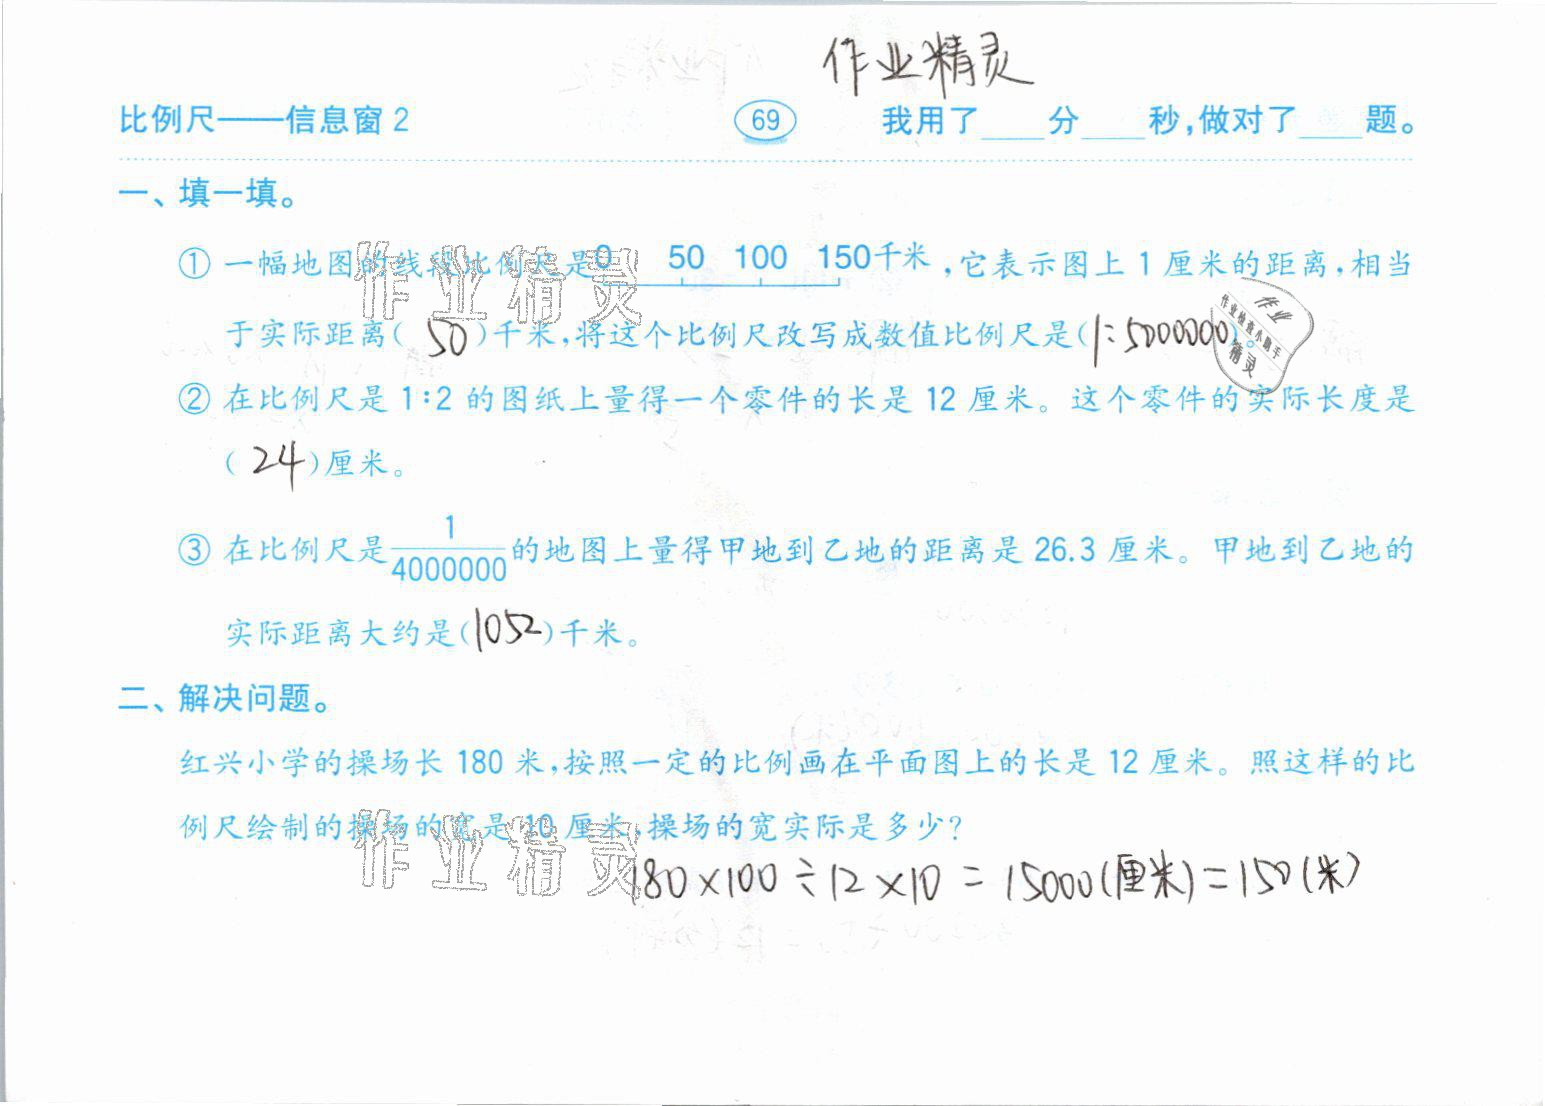 作业精灵
比例尺——信息窗2 69 我用了____分____秒,做对了____题。
一、填一填。
① 一幅地图的线段比例尺是0 50 100 150千米,它表示图上1厘米的距离,相当
于实际距离(50)千米,将这个比例尺改写成数值比例尺是(1:5000000)。
② 在比例尺是1:2的图纸上量得一个零件的长是12厘米。这个零件的实际长度是
(24)厘米。
③ 在比例尺是1/4000000的地图上量得甲地到乙地的距离是26.3厘米。甲地到乙地的
实际距离大约是(1052)千米。
二、解决问题。
红兴小学的操场长180米,按照一定的比例画在平面图上的长是12厘米。照这样的比
例尺绘制的操场的宽是10厘米,操场的宽实际是多少?
180×100÷12×10=15000(厘米)=150(米)
作业精灵
作业精灵
作业
作业检查小助手
精灵